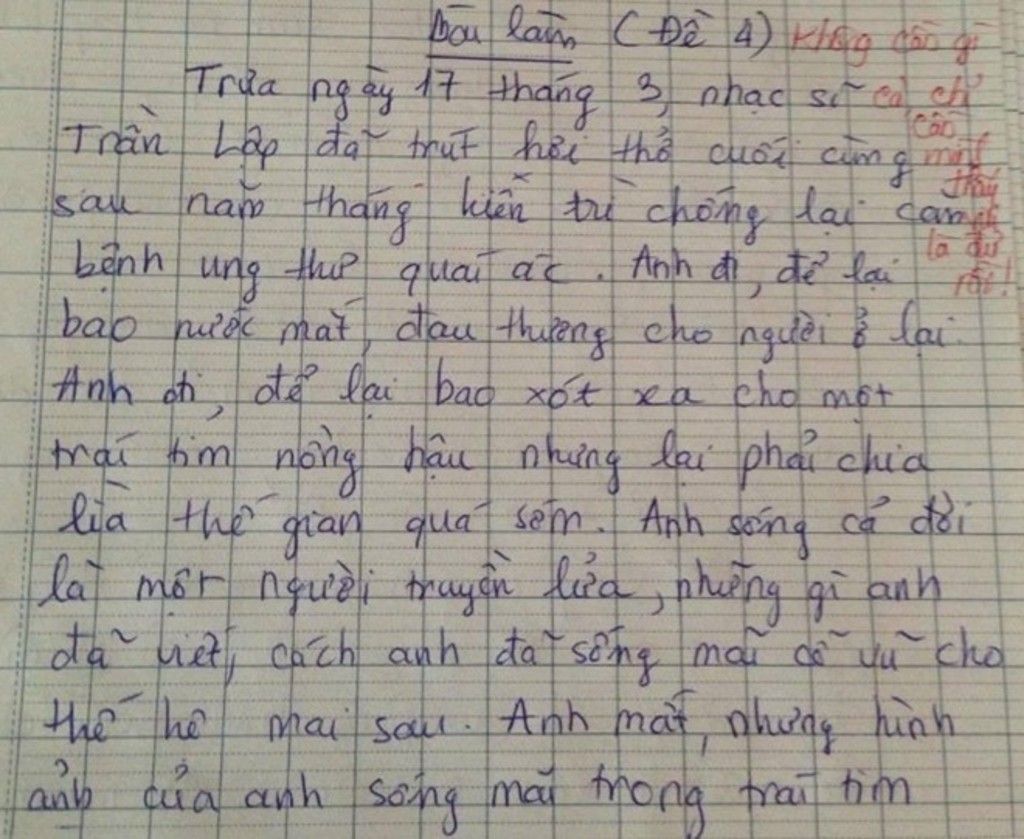 Bài làm (Đề 4) Không cần gì
Trưa ngày 17 tháng 3, nhạc sĩ cả, chỉ
cần
Trần Lập đã trút hơi thở cuối cùng một
thầy
sau năm tháng kiên trì chống lại căn
là đủ
bệnh ung thư quái ác. Anh đi, để lại rồi!
bao nước mắt, đau thương cho người ở lại.
Anh đi, để lại bao xót xa cho một
trái tim nồng hậu nhưng lại phải chia
lìa thế gian quá sớm. Anh sống cả đời
là một người truyền lửa, những gì anh
đã viết, cách anh đã sống mãi cổ vũ cho
thế hệ mai sau. Anh mất, nhưng hình
ảnh của anh sống mãi trong trái tim